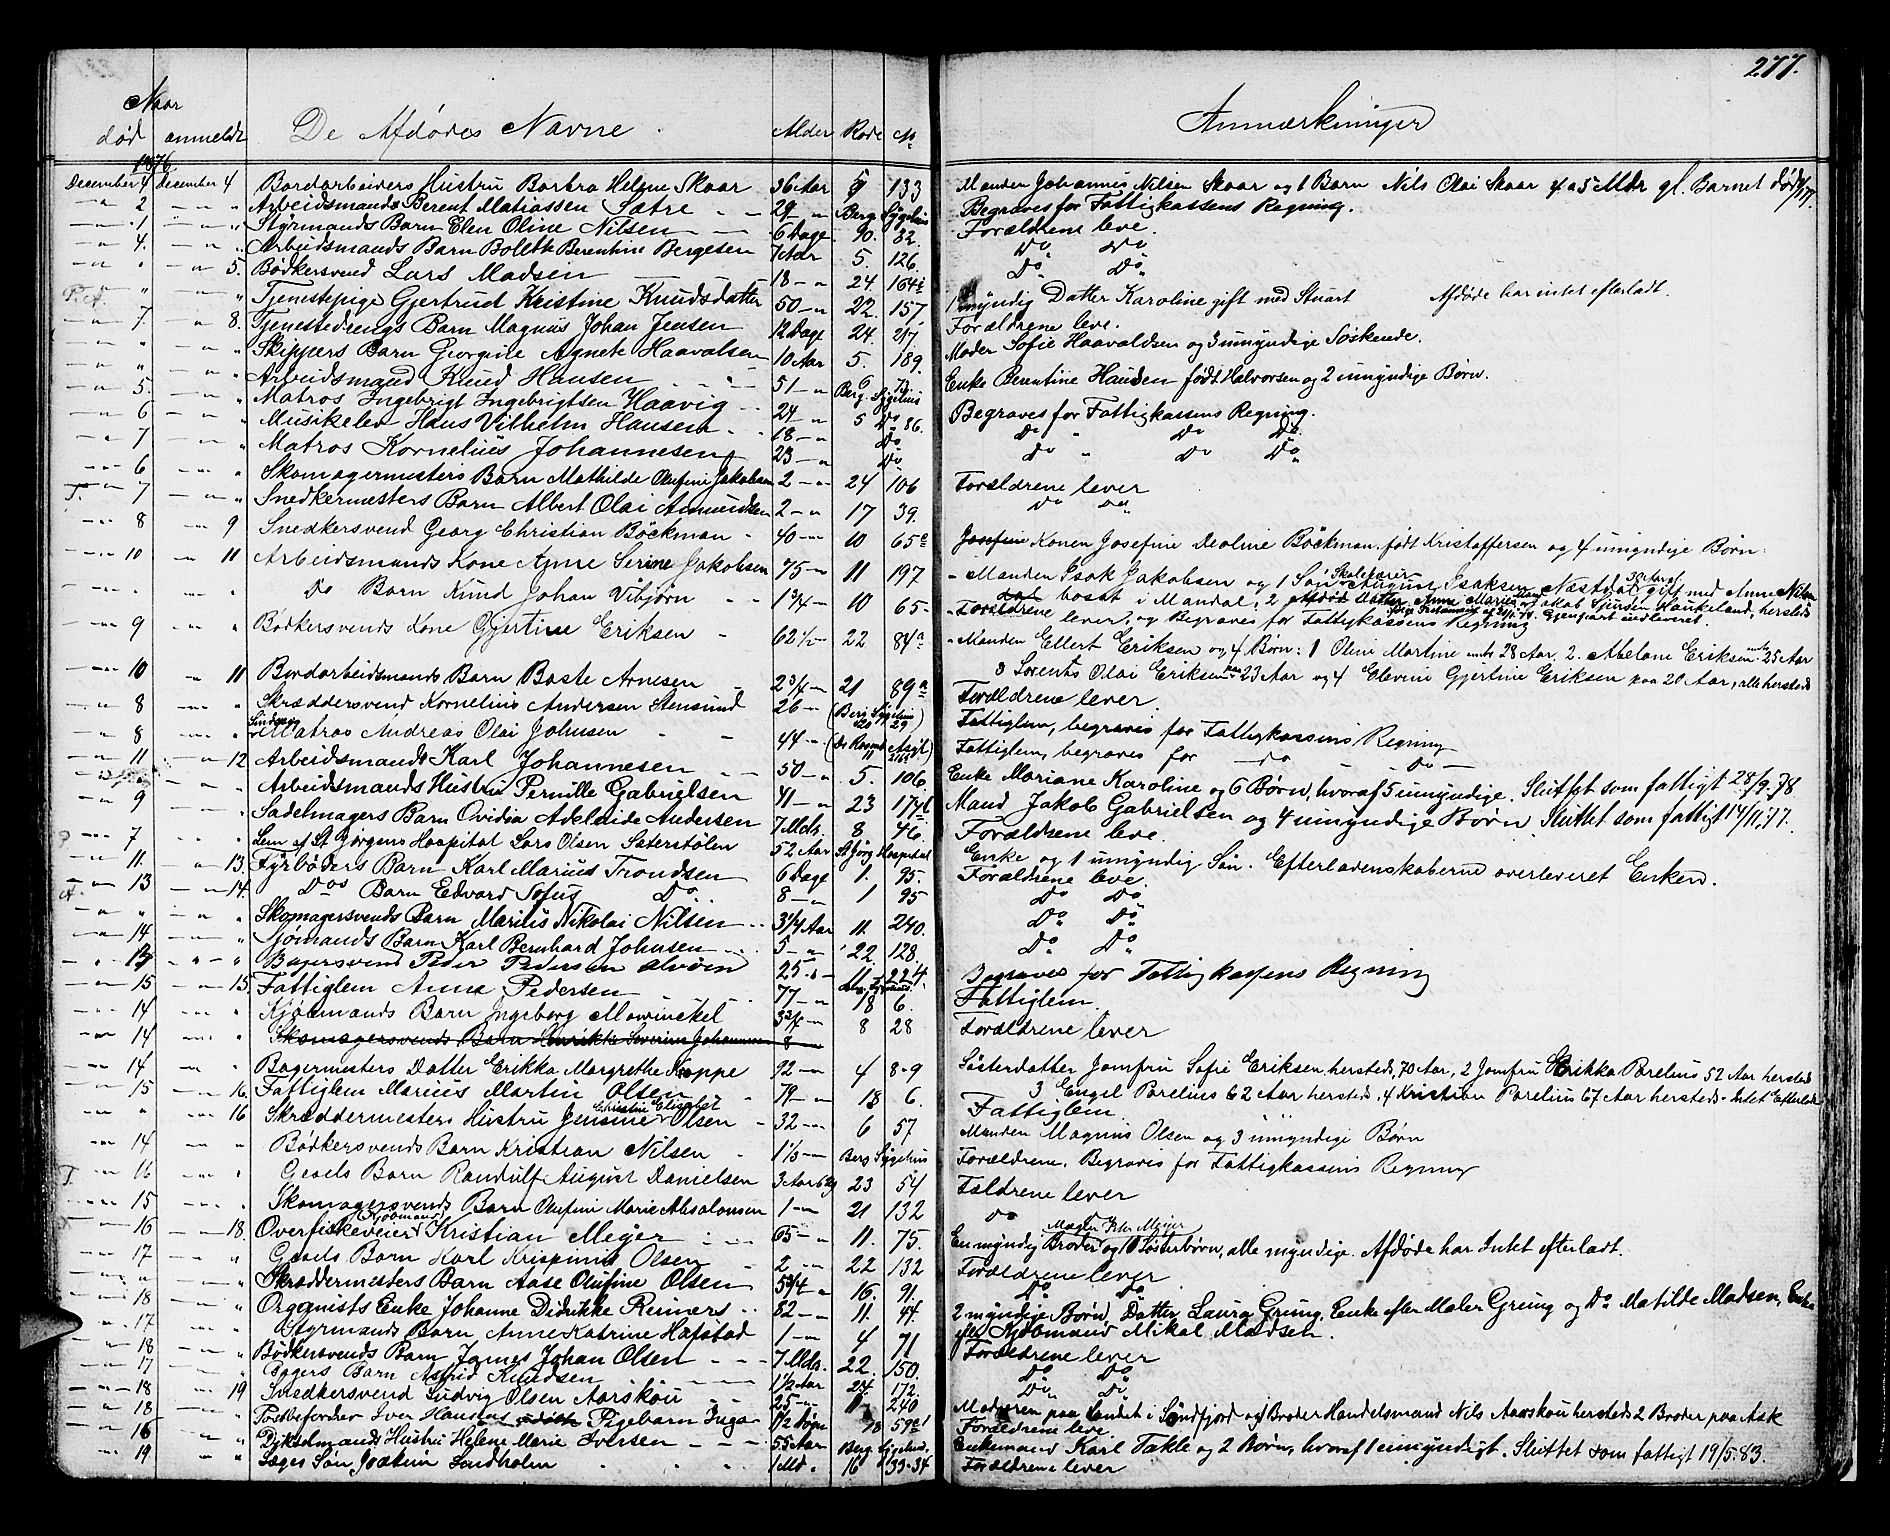 277.
Naar
død anmeldt De Afdødes Navne. Alder Rode No Anmærkninger
1876
December 4 December 4 Bordarbeiders Hustru Barbra Helene Skaar 36 Aar 9 133 Manden Johannes Nilsen Skaar og 1 Barn Nils Olai Skaar 4 a 5 Mdr gl. Barnet død
2 Arbeidsmands Berent Matiassen Sætre 29 Berg. Sygehus Begraves for Fattigkassens Regning.
1 Styrmands Barn Elen Oline Nilsen 6 Dage 90. 82. Forældrene leve.
4. Arbeidsmands Barn Bolette Berentine Bergesen 7 Aar 5. 126. Do Do
5. Bødkersvend Lars Madsen 18 24. 164 Do Do
Tjenestepige Gjertrud Kristine Knudsdatter 50 22. 157 1 myndig Datter Karoline gift med Stuart Afdøde har intet efterladt.
7. 8. Tjenestedrengs Barn Magnus Johan Jensen 12 Dage 24. 217. Forældrene leve.
Skippers Barn Georgine Agnete Haavalsen 10 Aar 5. 189. Moder Sofie Haavaldsen og 3 umyndige Søskende.
Arbeidsmand Knud Hansen 51 Enke Berentine Hansen født Halvorsen og 2 umyndige Børn.
5. Matros Ingebrigt Ingebrigtsen Haavig 24 Berg. Sygehus Begraves for Fattigkassens Regning.
6 Musikelev Hans Vilhelm Hansen 18 Do Do Do Do
7 Matros Kornelius Johannesen 23 Do Do Do Do
6 Skomagermesters Barn Mathilde Olufine Jakobsen 2 24 106 Forældrene lever
T. 7 Snedkermesters Barn Albert Olai Amundsen 2 17 39. Do Do
8 9 Snedkersvend Georg Christian Böckman 40 10 65a Konen Josefine Deoline Böckman, født Kristoffersen og 4 umyndige Børn:
10 11 Arbeidsmands Kone Anne Serine Jakobsen 75 11 197 Manden Isak Jakobsen og 1 Søn August Isaksen Næstdal gift med Anne Nilsen
bosat i Mandal, 2
Do Barn Knud Johan Vibjørn 1 3/4 10 65 Forældrene lever, og Begraves for Fattigkassens Regning
9 Bødkersvends Kone Gjertine Eriksen 62 1/2 22 84a Manden Ellert Eriksen og 4 Børn: 1 Oline Martine 28 Aar, 2. Abelone Eriksen 25 Aar
3 Sorents Olai Eriksen 23 Aar og 4 Elevine Gjertine Eriksen paa 20 Aar, alle hersteds
10 11 Bordarbeidsmands Barn Baste Arnesen 2 3/4 21 89a Forældrene lever.
8 Skræddersvend Kornelius Andersen Stensund 26 (Berg Sygehus) Fattiglem, begraves for Fattigkassens Regning
8 Matros Andreas Olai Johnsen 44 Fattiglem, begraves for do Do
11 12 Arbeidsmands Karl Johannesen 50 5. 106 Enke Mariane Karoline og 6 Børn, hvoraf 5 umyndige. Sluttet som fattigt 28/9.78
Arbeidsmands Hustru Pernille Gabrielsen 41 23 174 Mand Jakob Gabrielsen og 4 umyndige Børn. Sluttet som fattigt 14/11.77.
9 Sadelmagers Barn Ovidia Adelaide Andersen 7 Mdr. 8 46 Forældrene leve.
7 Lem af St Jørgens Hospital Lars Olsen Sæterstølen 52 Aar St Jørg Hospital Enke og 1 umyndig Søn. Efterladenskaberne overleveret Enken.
11. 13. Fyrbøders Barn Karl Marius Trondsen 6 Dage 1. 95. Forældrene leve.
13 14. Dos Barn Edvard Sofus Do. 8 1 95 Do Do
Skomagersvends Barn Marius Nikolai Nilsen 3 1/4 Aar 11. 240. Do Do
14 Sjømands Barn Karl Bernhard Johnsen 5 22. 128. Do Do
Bagersvend Peder Pedersen Alvøen 25 11 224. Begraves for Fattigkassens Regning
15 15. Fattiglem Anna Pedersen 77 18 6. Fattiglem.
14 Kjøbmands Barn Ingeborg Mowinckel 8 28 Forældrene lever
14 Skomagersvends Barn Henrikka Severine Johannesen 8
14 Bagermesters Datter Erikka Margrethe Koppe 92 4 8-9 Søsterdatter Jomfru Sofie Eriksen hersteds, 70 Aar, 2 Jomfru Erikka Parelius 52 Aar hersteds
3 Engel Parelius 62 Aar hersteds, 4 Kristian Parelius 67 Aar hersteds - Intet Efterladt
15 16. Fattiglem Marius Martin Olsen 79 18 6. Fattiglem.
16 Skræddermesters Hustru Jensine Christine Elisabet Olsen 32 6 57 Manden Magnus Olsen og 3 umyndige Børn
14 Bødkersvends Barn Kristian Nilsen 1 1/2 Berg Sygehus Forældrene. Begraves for Fattigkassens Regning
T. 16 Gesels Barn Randulf August Danielsen 3 Aar 23 54 Foldrene lever
15 Skomagersvends Barn Olufine Marie Absalonsen 1 21 132 do
16 18. Overfiskeveier Kjøbmand Kristian Meyer 65 11. 75. En myndig Broder Mægler Peter Meyer og 10 Søsterbørn, alle myndige. Afdøde har Intet efterladt.
17 Gesels Barn Karl Krispinus Olsen 2 22 132 Forældrene lever
Skræddermesters Barn Aase Olufine Olsen 5 3/4 16. 91. Do Do
18 Organists Enke Johanne Didrikke Reimers 82 11. 44. 2 myndige Børn, Datter Laura Grung, Enke efter Maler Grung og Do Matilde Madsen, Enke
efter Kjøbmand Mikal Madsen.
17 Styrmands Barn Anne Katrine Hafstad 1 4 71 Forældrene lever
18 Bødkersvends Barn James Johan Olsen 7 Mdr. 22. 150. Do Do
17 Bagers Barn Astrid Knudsen 1 1/2 Aar 24 172. Do Do
18 19 Snedkersvend Ludvig Olsen Aarskou 25 240 Moderen paa Landet i Søndfjord og 1 Broder Handelsmand Nils Aarskou hersteds 2 Brødre paa Ask
18 Postbefordrer Iver Hansens Pigebarn Inga 1 1/2 Døgn 18 59 Forældrene leve.
16 Dykselmands Hustru Helene Marie Iversen 55 Aar Berg. Sygehus. Enkemand Karl Takle og 2 Børn, hvoraf 1 umyndigt. Sluttet som fattigt 19/5.83.
19 Læges Søn Joakim Lindholm 1 Md. 16 33-34 Forældrene lever